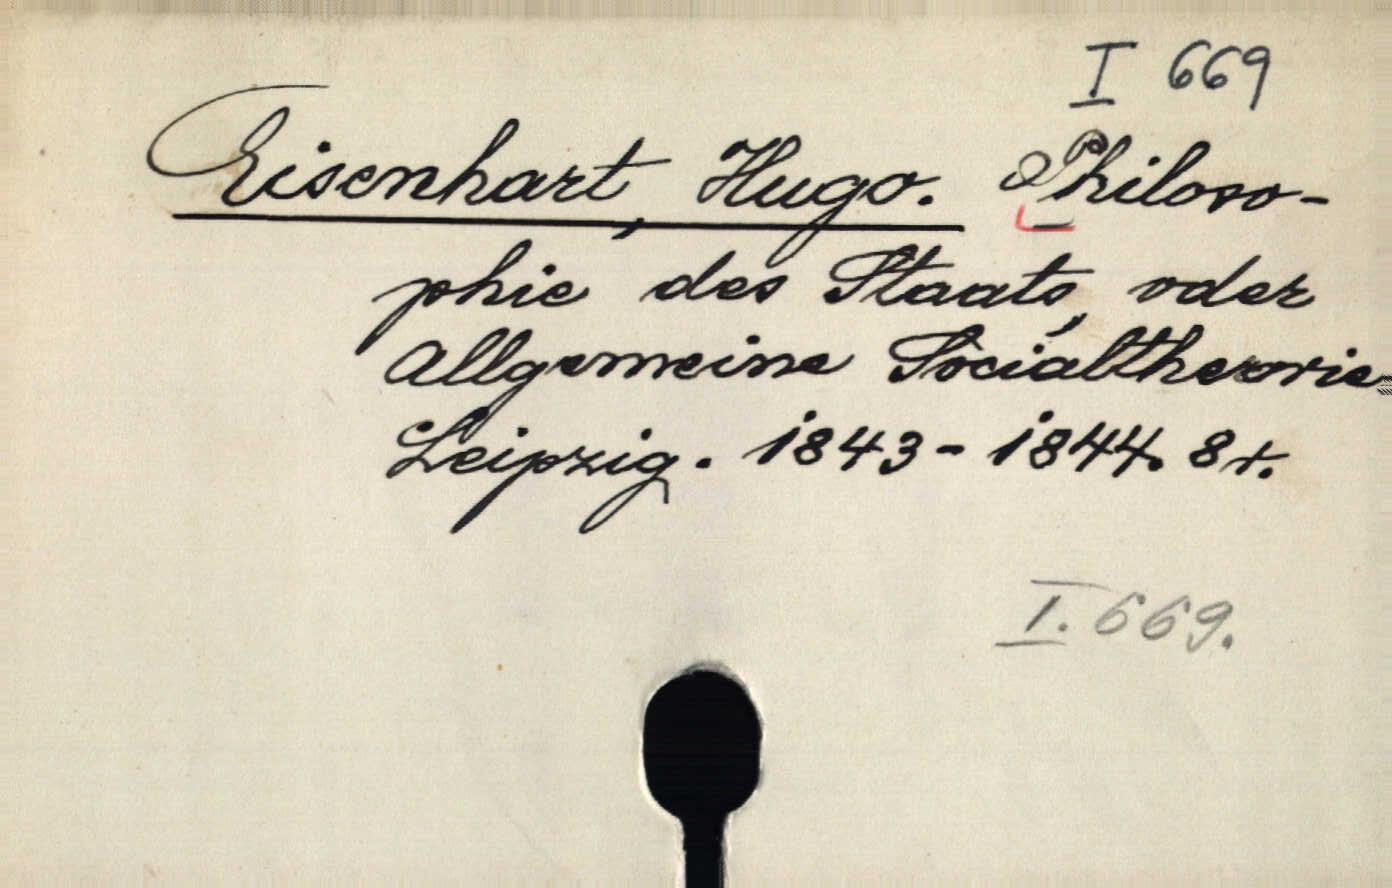 I 669
Eisenhart, Hugo. Philoso-
phie des Staats, oder
Allgemeine Socialtheorie.
Leipzig. 1843-1844. 8r.
I. 669.